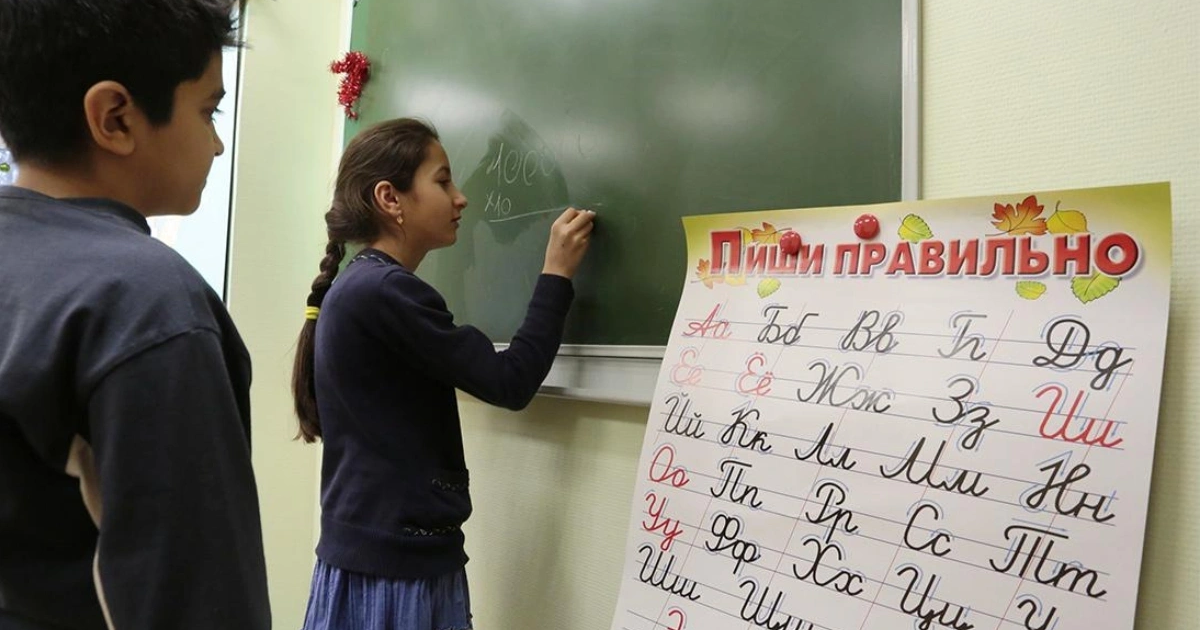 1000
×10
Пиши правильно
Аа Бб Вв Гг Дд
Ее Ёё Жж Зз Ии
Йй Кк Лл Мм Нн
Оо Пп Рр Сс Тт
Уу Фф Хх Цц Ч
Шш Щщ